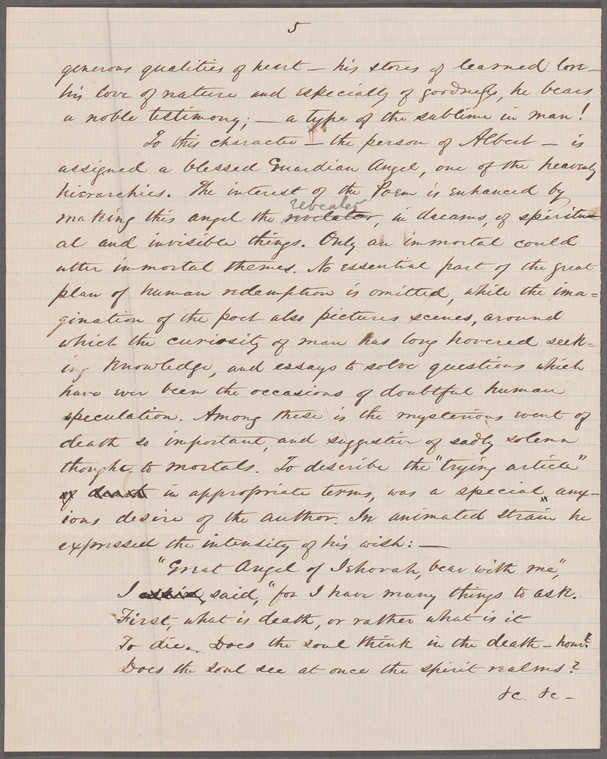 5
generous qualities of heart — his stores of learned lore —
his love of nature and especially of goodness, he bears
a noble testimony; — a type of the sublime in man!
To this character — the person of Albert — is
assigned a blessed Guardian Angel, one of the heavenly
hierarchies. The interest of the Poem is enhanced by
revealer
making this angel the revelator, in dreams, of spiritu-
al and invisible things. Only an immortal could
utter immortal themes. No essential part of the great
plan of human redemption is omitted, while the ima-
gination of the poet also pictures scenes, around
which the curiosity of man has long hovered seek-
ing knowledge, and essays to solve questions which
have ever been the occasions of doubtful human
speculation. Among these is the mysterious event of
death so important, and suggestive of sadly solemn
thought to mortals. To describe the "trying article"
of death in appropriate terms, was a special anx-
ious desire of the author. In animated strain he
expressed the intensity of his wish: —
"Great Angel of Jehovah, bear with me",
I said, "for I have many things to ask.
First, what is death, or rather what is it
To die. Does the soul think in the death-hour?
Does the soul see at once the spirit realms?
&c. &c —